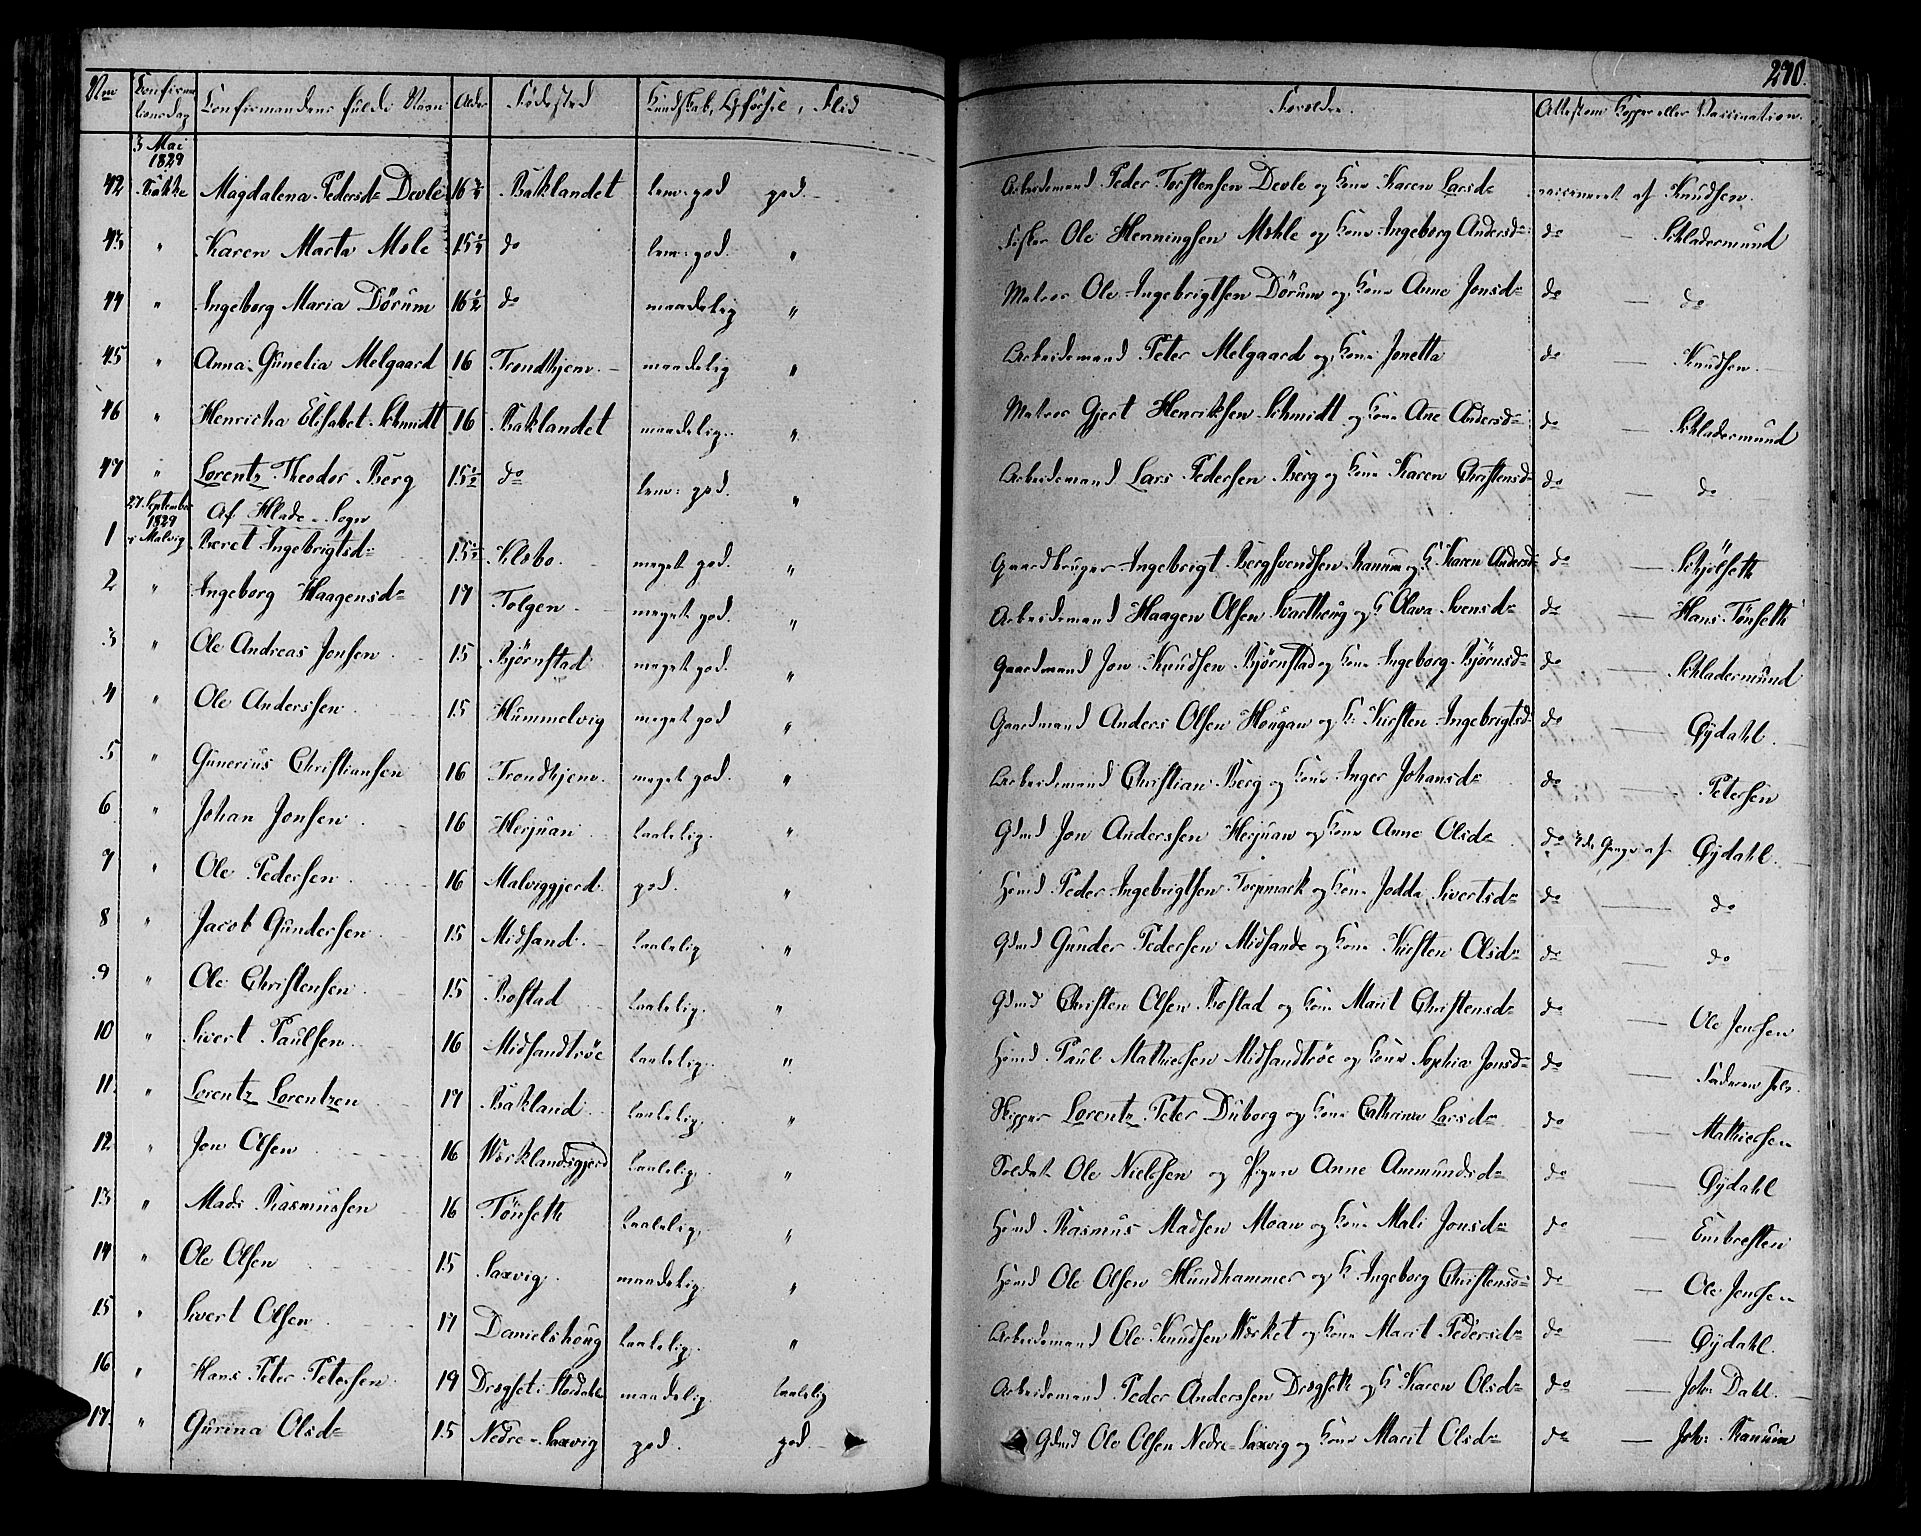 270.
Nro Confirmationsdag Confirmandens fulde Navn Alder Fødested Kundskab, Opførsel, Flid Forældre. Attest om Kopper eller Vaccination.
3 Mai
1829
42 i Bakke Magdalena Pedersdr Devle 16 Baklandet tem: god god. Arbeidsmand Peder Torstensen Devle og Kone Karen Larsdr vaccineret af Knudsen.
43 " Karen Marta Mole 15½ do tem: god. " Fisker Ole Henningsen Mohle og Kone Ingeborg Andersdr do — Schladermund
44 " Ingeborg Maria Dörum 16½ do maadelig " Matros Ole Ingebrigtsen Dörum og Kone Anne Jonsdr do — do
45 " Anna Gunelia Melgaard 16 Trondhjem maadelig " Arbeidsmand Peter Melgaard og Kone Jonetta do — Knudsen
46 " Henricha Elisabet Schmidt 16 Baklandet maadelig. " Matros Gjert Henriksen Schmidt og Kone Ane Andersdr do — Schladermund
47 " Lorentz Theodor Berg 15½ do tem: god. " Arbeidsmand Lars Pedersen Berg og Kone Karen Christensdr do — do
27 September
1829 Af Hlade Sogn
1 i Malvig Beret Ingebrigtsdr 15½ Klobo meget god. " Gaardbruger Ingebrigt Bergsvendsen Ranum og K Karen Andersdr do — Schjölseth
2 " Ingeborg Haagensdr 17 Tolgen meget god. " Arbeidsmand Haagen Olsen Svartheug og K Olava Svensdr do — Hans Tönseth
3 " Ole Andreas Jonsen 15 Björnstad meget god. " Gaardmand Jon Knudsen Björnstad og Kone Ingeborg Björnsdr do — Schladermund
4 " Ole Anderssen 15 Hummelvig meget god " Gaardmand Anders Olsen Hougan og K: Kirsten Ingebrigtsdr do — Øydahl.
5 " Gunerius Christiansen 16 Trondhjem. meget god. " Arbeidsmand Christian Berg og Kone Inger Johansdr do — Petersen
6 " Johan Jonsen 16 Herjuan taalelig. " Gdmd Jon Anderssen Herjuan og Kone Anne Olsdr do Gange af Øydahl.
7 " Ole Pedersen 16 Malviggjerd god. " Hmd Peder Ingebrigtsen Torpmark og Kone Jodda Sivertsdr do — do
8 " Jacob Gundersen 15 Midsand taalelig " Gdmd Gunder Pedersen Midsande og Kone Kirsten Olsdr do — do
9 " Ole Christensen 15 Bostad taalelig. " Gdmd Christen Olsen Bostad og Kone Marit Christensdr do — Ole Jenssen
10 " Sivert Paulsen 16 Midsandtröe taalelig. " Hmd Paul Mathiesen Midsandtröe og Kone Sophia Jonsdr do — Faderen selv.
11 " Lorentz Lorentzen 17 Bakland taalelig. " Skipper Lorentz Peter Duborg og Kone Cathrina Larsdr do — Mathiessen
12 " Jon Olsen 16 Værklandsgjerd taalelig. " Soldat Ole Nielssen og Pigen Anne Ammundsdr do — Øydahl
13 " Mads Rasmussen 16 Tönseth taalelig. " Hmd Rasmus Madsen Moan og Kone Mali Jonsdr do — Embretsen
14 " Ole Olsen 15 Saxvig. maadelig. " Hmd Ole Olsen Hundhammer og K Ingeborg Christensdr do — Ole Jenssen
15 " Sivert Olsen 17 Danielshoug taalelig. " Arbeidsmand Ole Knudsen Værket og Kone Marit Pedersdr do — Øydahl.
16 " Hans Peter Petersen 19 Drogset i Stördalen maadelig. taalelig Arbeidsmand Peder Anderssen Drogseth og K Karen Olsdr do — Joh: Dahl.
17 " Gurina Olsdr 15 Nedre Saxvig god. god Gdmd Ole Olsen Nedre Saxvig og Kone Marit Olsdr do — Joh: Ranum